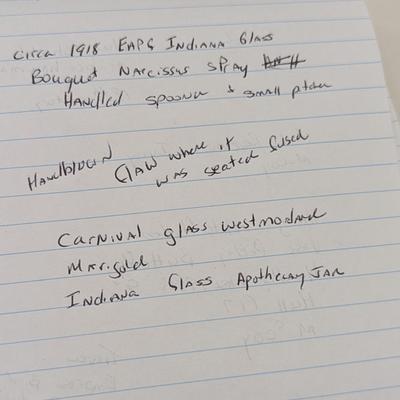 circa 1918 EAPG Indiana Glass
Bouquet Narcissus Spray
Handled spooner & small pitcher
Handblown
Claw where it
was seated fused
Carnival glass westmorland
Marigold
Indiana Glass Apothecary Jar